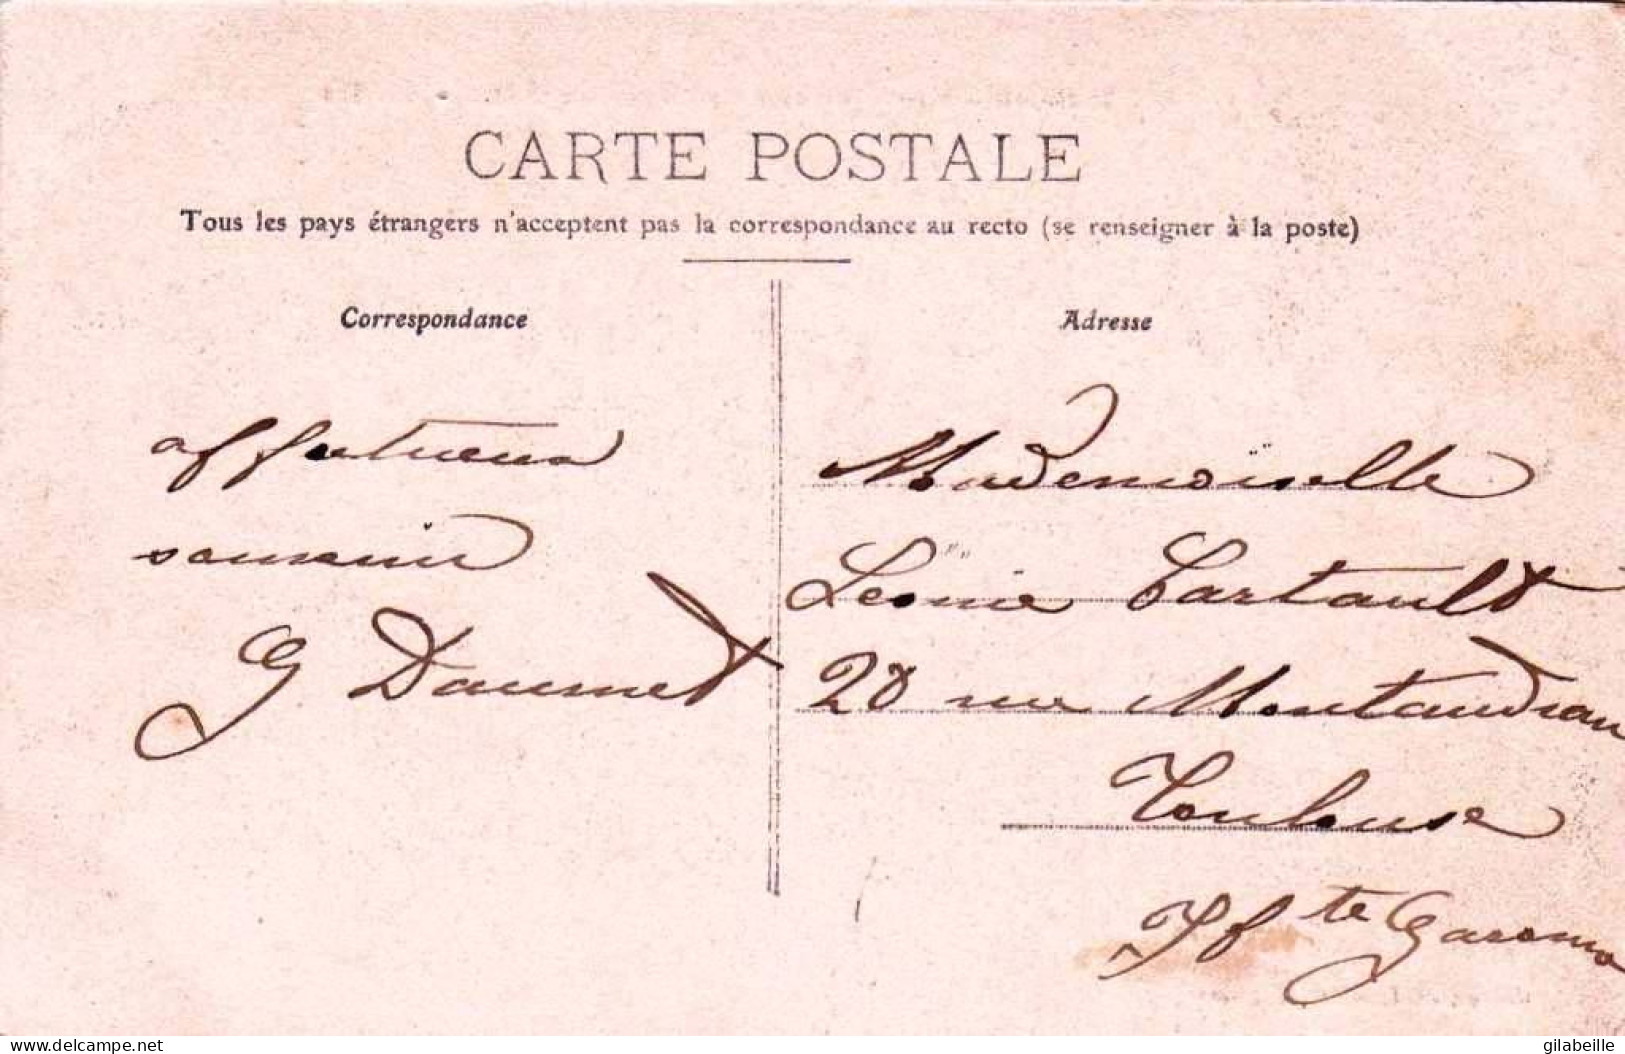 CARTE POSTALE
Tous les pays étrangers n'acceptent pas la correspondance au recto (se renseigner à la poste)
Correspondance
affectueux
souvenir
G Daumet
Adresse
Mademoiselle
Léonie Tartault
28 rue Montaudran
Toulouse
Hte Garonne
delcampe.net
gilabeille